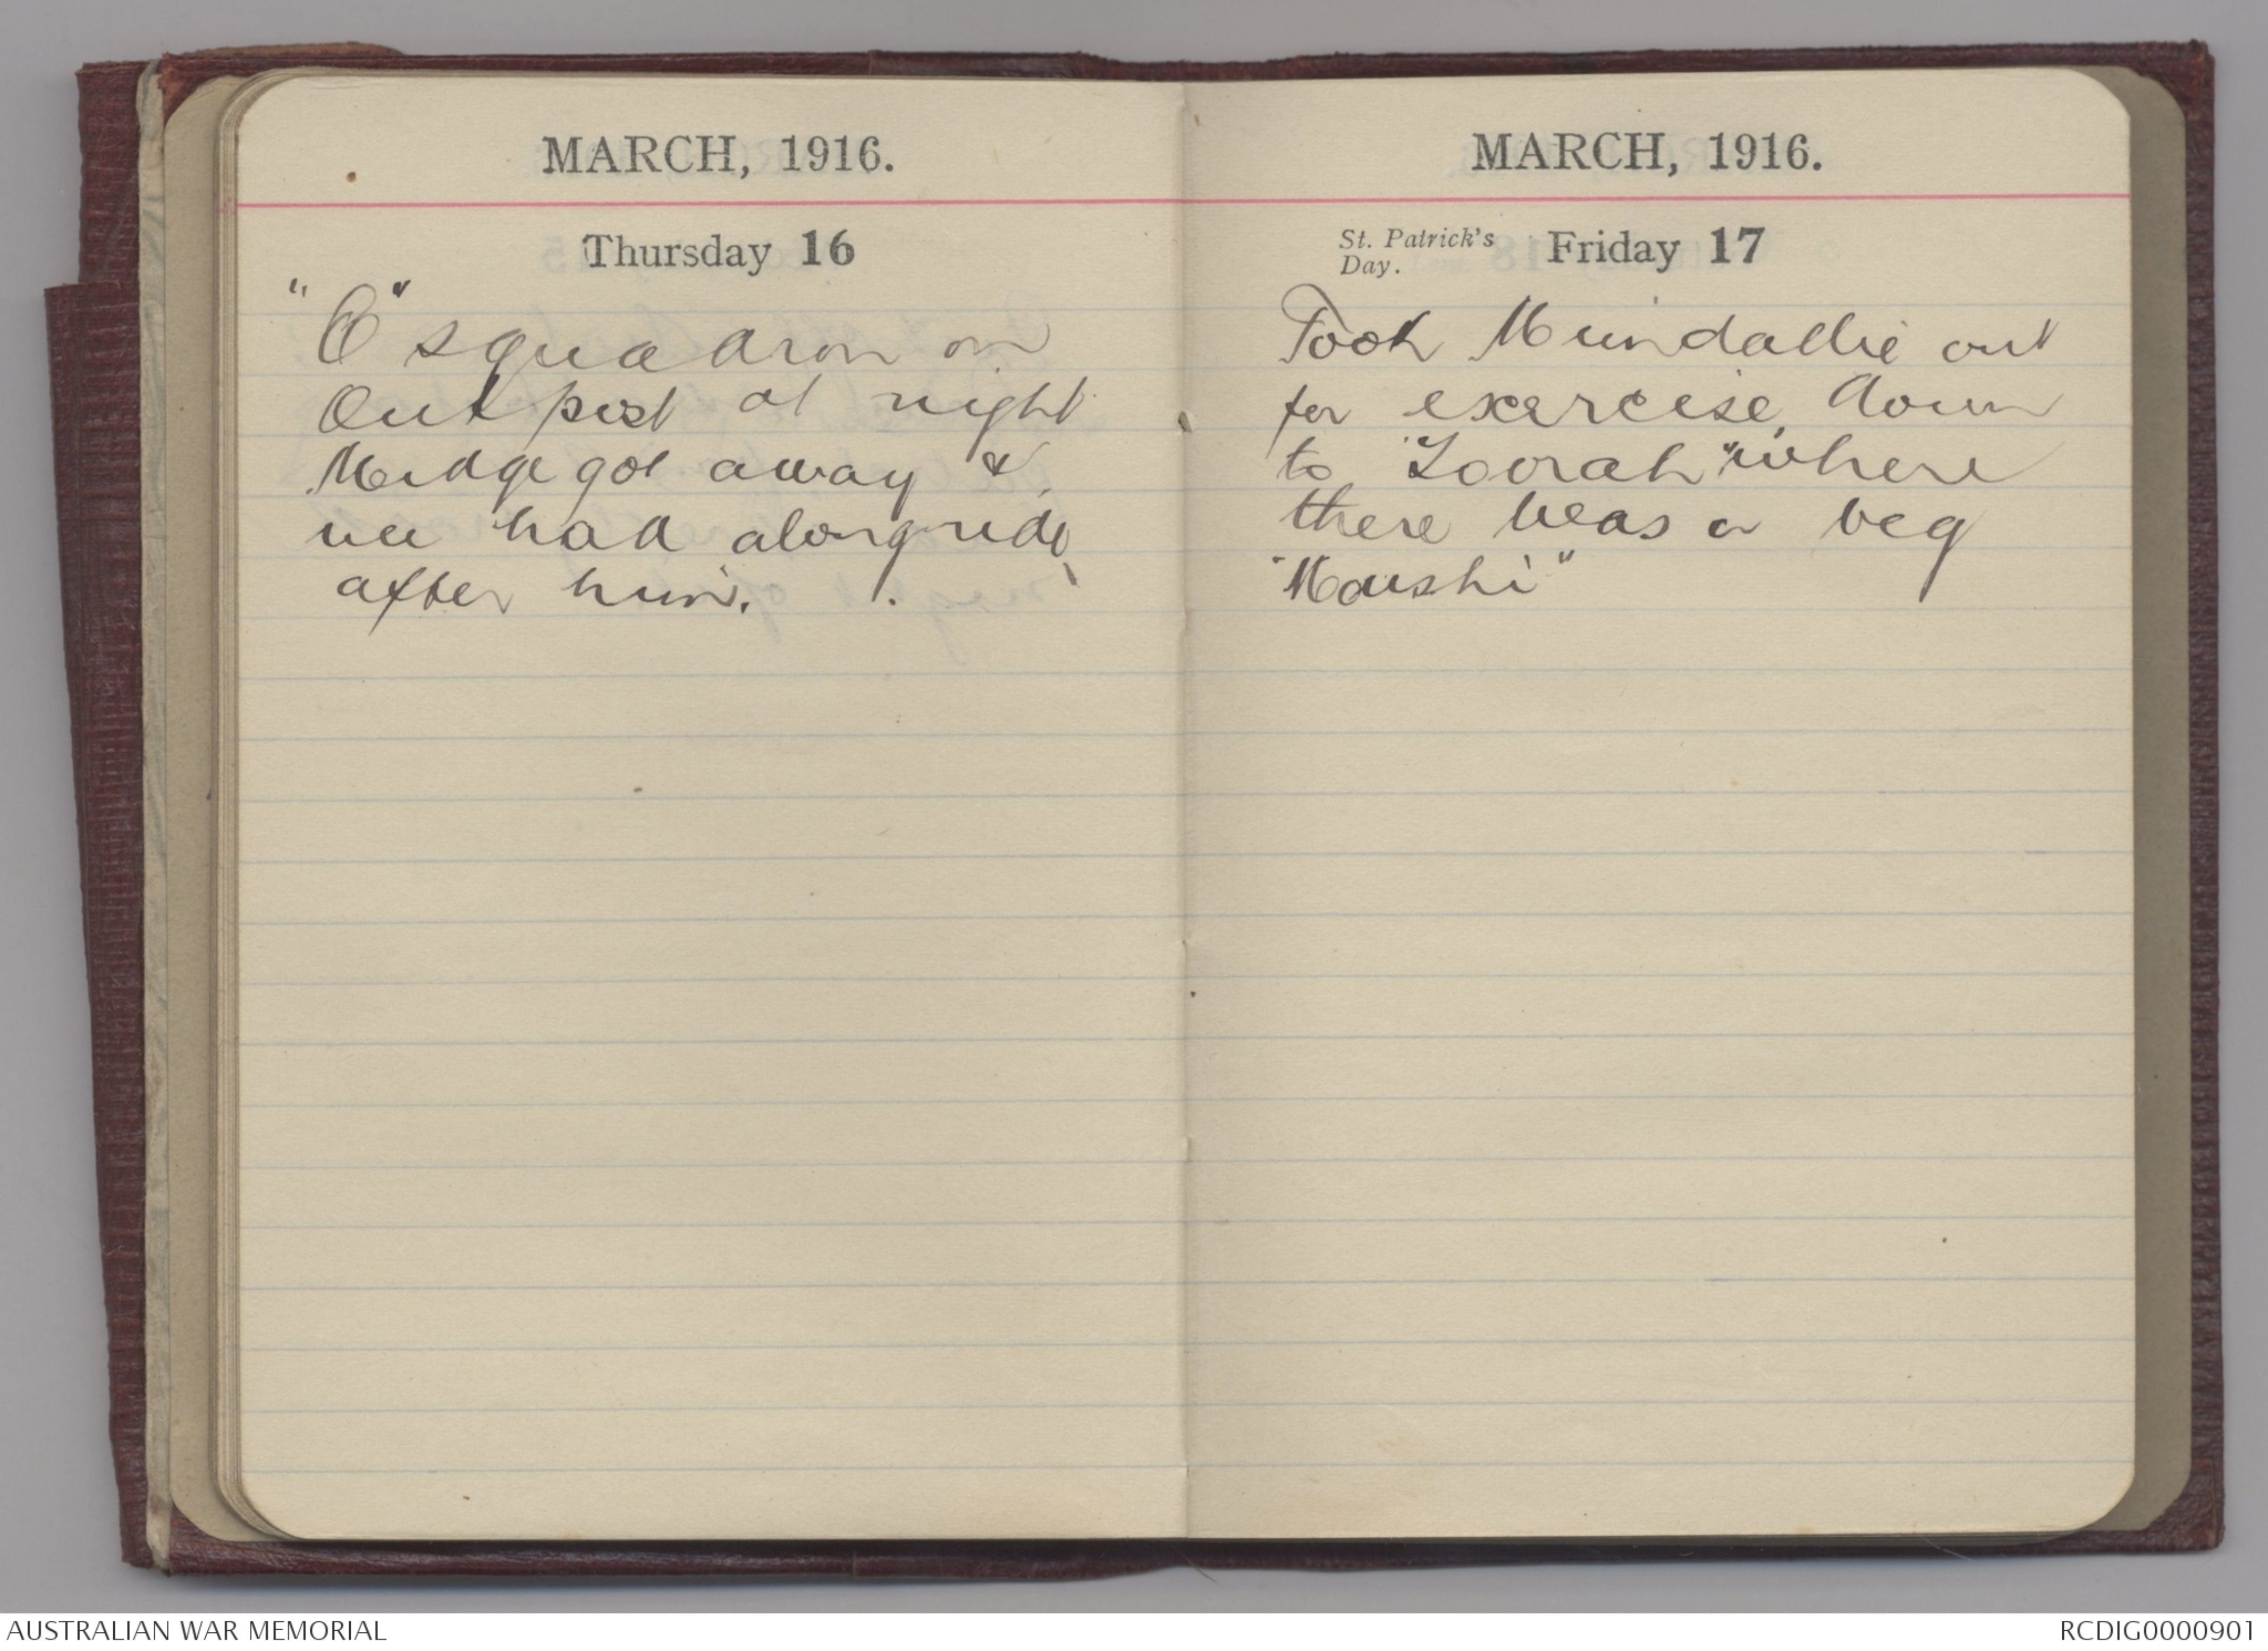 MARCH, 1916.
Thursday 16
squadron on
Outpost at night
Midge got away &
we had a long ride
after him.
MARCH, 1916.
St. Patrick's Day. Friday 17
Took Mundallie out
for exercise, down
to "Zoorah" where
there was a big
"Moushi"
AUSTRALIAN WAR MEMORIAL
RCDIG0000901